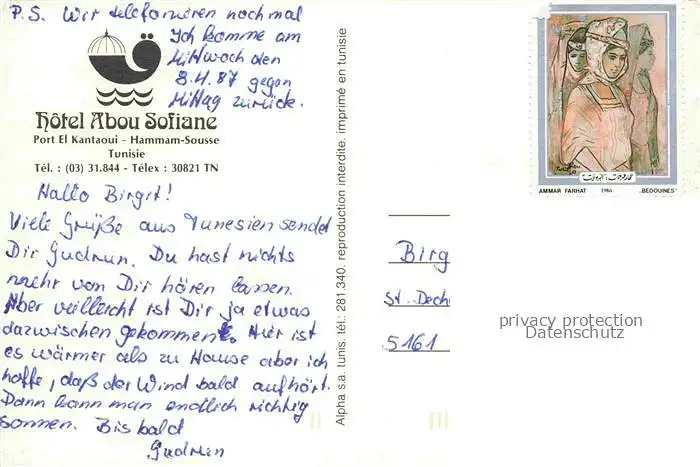 P.S. Wir telefonieren nochmal
Ich komme am
Mittwoch den
8.4.87 gegen
Mittag zurück.
Hôtel Abou Sofiane
Port El Kantaoui - Hammam-Sousse
Tunisie
Tél. : (03) 31.844 - Télex : 30821 TN
Hallo Birgit!
Viele Grüße aus Tunesien sendet
Dir Gudrun. Du hast nichts
mehr von Dir hören lassen.
Aber veilleicht ist Dir ja etwas
dazwischen gekommen. Hier ist
es wärmer als zu Hause aber ich
hoffe, daß der Wind bald aufhört.
Dann kann man endlich richtig
sonnen. Bis bald
Gudrun
Alpha s.a. tunis. tél.: 281.340. reproduction interdite. imprimé en tunisie
AMMAR FARHAT 1986 „BÉDOUINES"
Birg
St. Dech
5161
privacy protection
Datenschutz